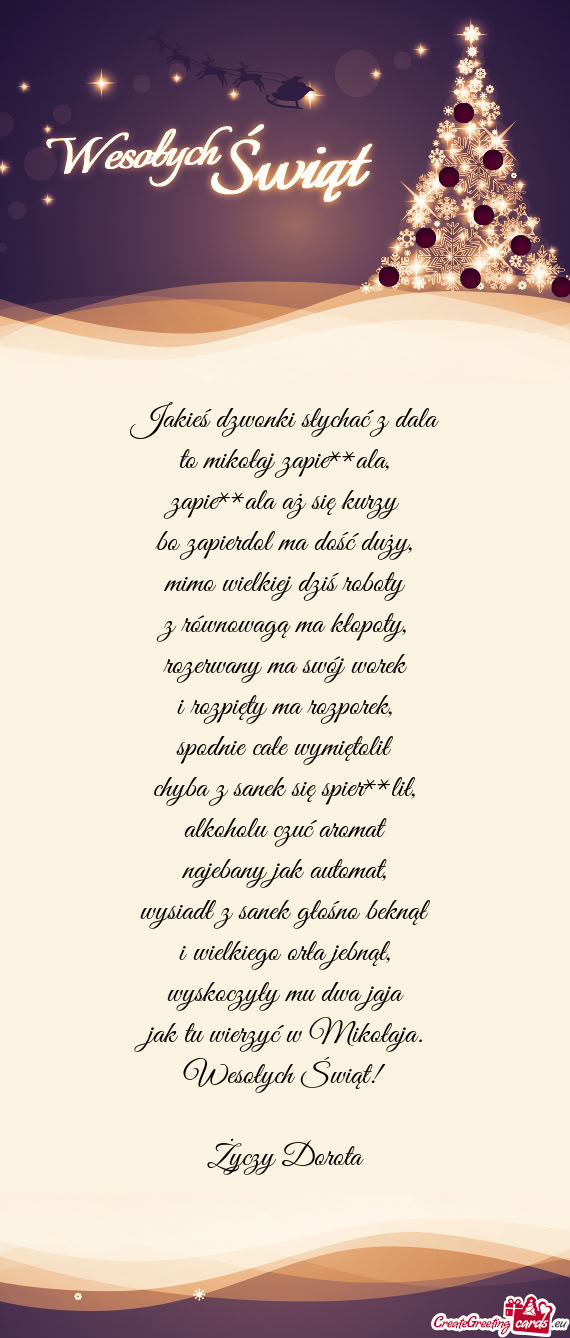 Wesołych Świąt
Jakieś dzwonki słychać z dala
to mikołaj zapie**ala,
zapie**ala aż się kurzy
bo zapierdol ma dość duży,
mimo wielkiej dziś roboty
z równowagą ma kłopoty,
rozerwany ma swój worek
i rozpięty ma rozporek,
spodnie całe wymiętolił
chyba z sanek się spier**lił,
alkoholu czuć aromat
najebany jak automat,
wysiadł z sanek głośno beknął
i wielkiego orła jebnął,
wyskoczyły mu dwa jaja
jak tu wierzyć w Mikołaja.
Wesołych Świąt!
Życzy Dorota
CreateGreetingcards.eu